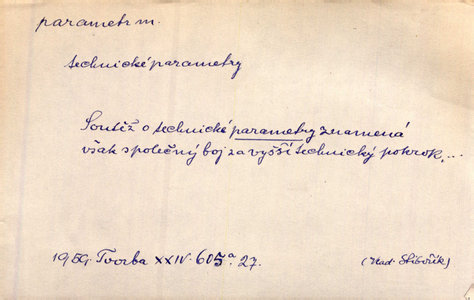 parametr m.
technické parametry
Soutěž o technické parametry znamená
však společný boj za vyšší technický pokrok,...
1959. Tvorba XXIV. 605a. 27.
(Vlad. Stibořík)